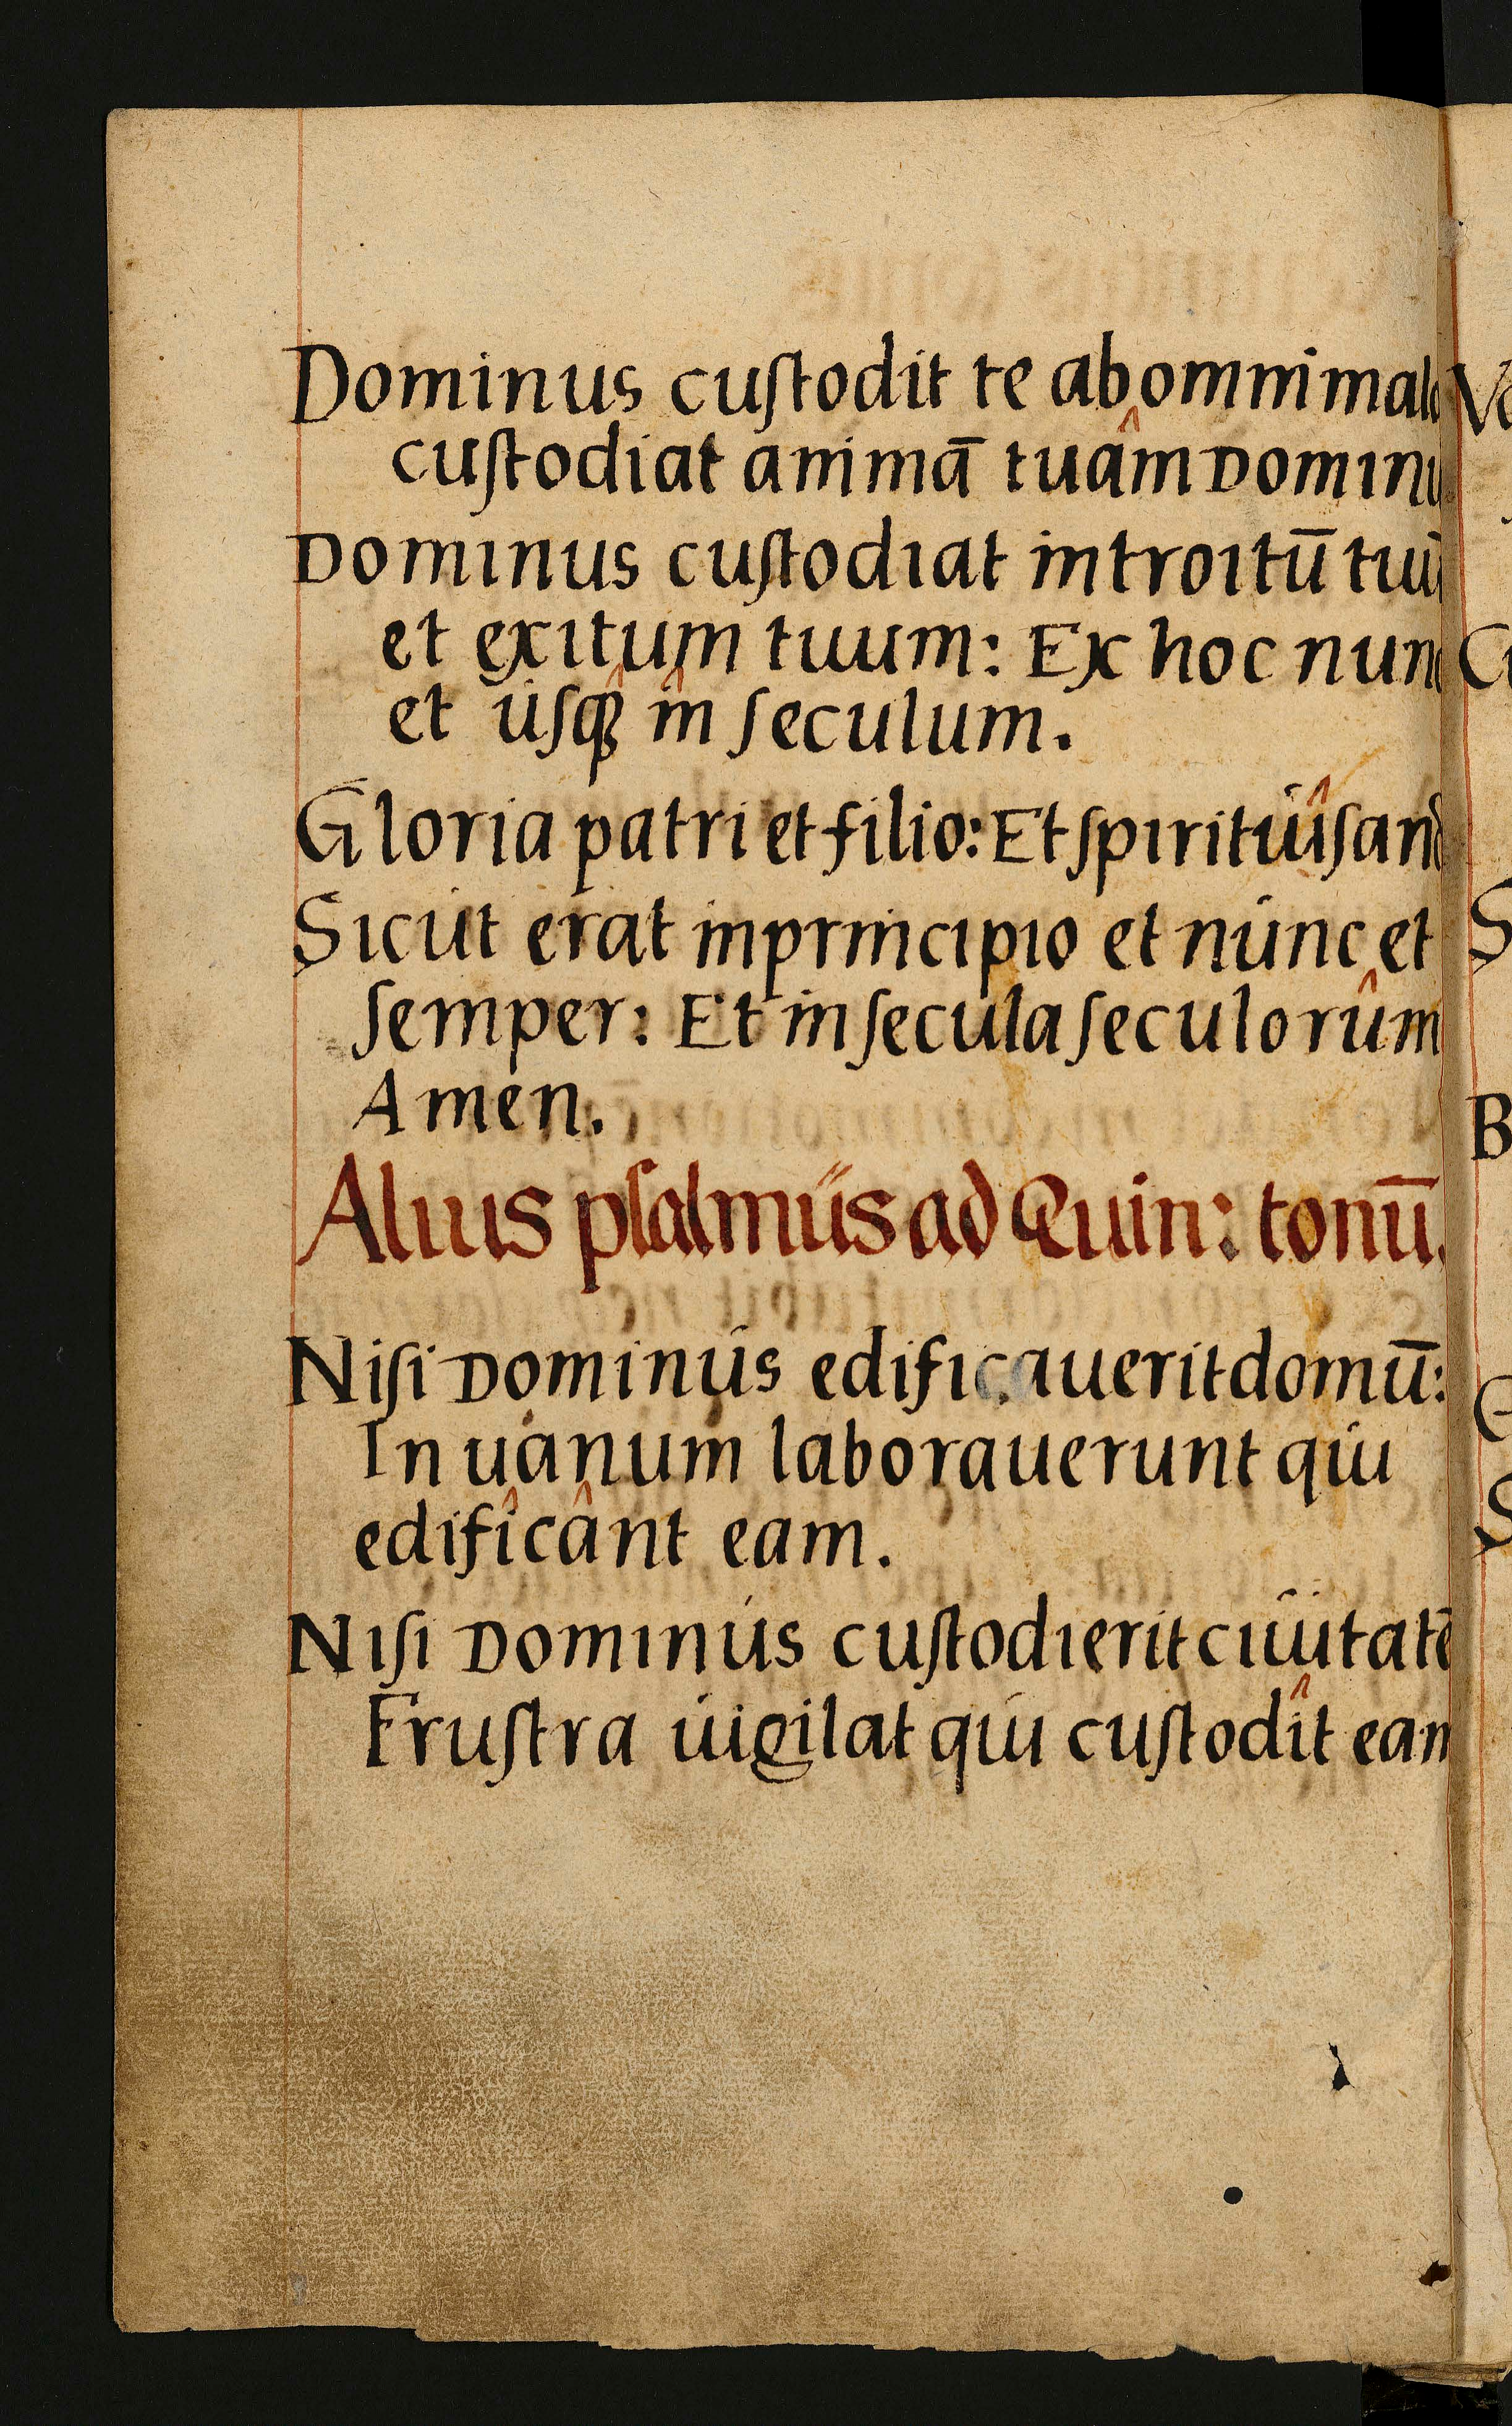 Dominus cuſtodit te ab omni malo
cuſtodiat animā tuâm Dominu
Dominus cuſtodiat introitū tuū
et exitum tuum: Ex hoc nunc
et úſqꝫ̂ în ſeculum.
Gloria patri et filio: Et ſpirituíˆ ſanc
Sicút erat in principio et núnc et
ſemper: Et in ſecula ſeculorûm
Amen.
Alius pſalmús ad Quin: tonū.
Niſi Dominús edificauerit domū:
In uanum laborauerunt qui
edifîcânt eam.
Niſi Dominús cuſtodierit ciuitatē
Fruſtra uigilat qui cuſtodît eam
B
S